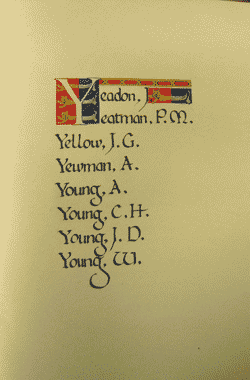 Yeadon, J.
Yeatman, P.M.
Yellow, J.G.
Yewman, A.
Young, A.
Young, C.H.
Young, J.D.
Young, W.